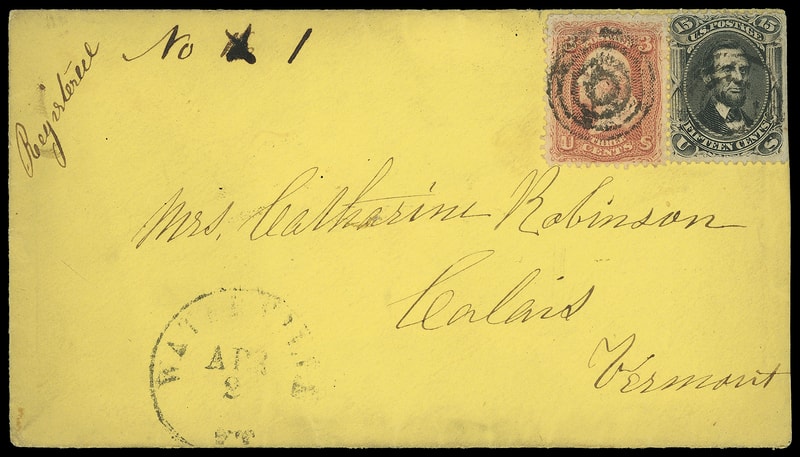 Registered
No 1
3 3
U CENTS S
15 U.S. POSTAGE 15
U FIFTEEN CENTS S
Mrs. Catharine Robinson
Calais
Vermont